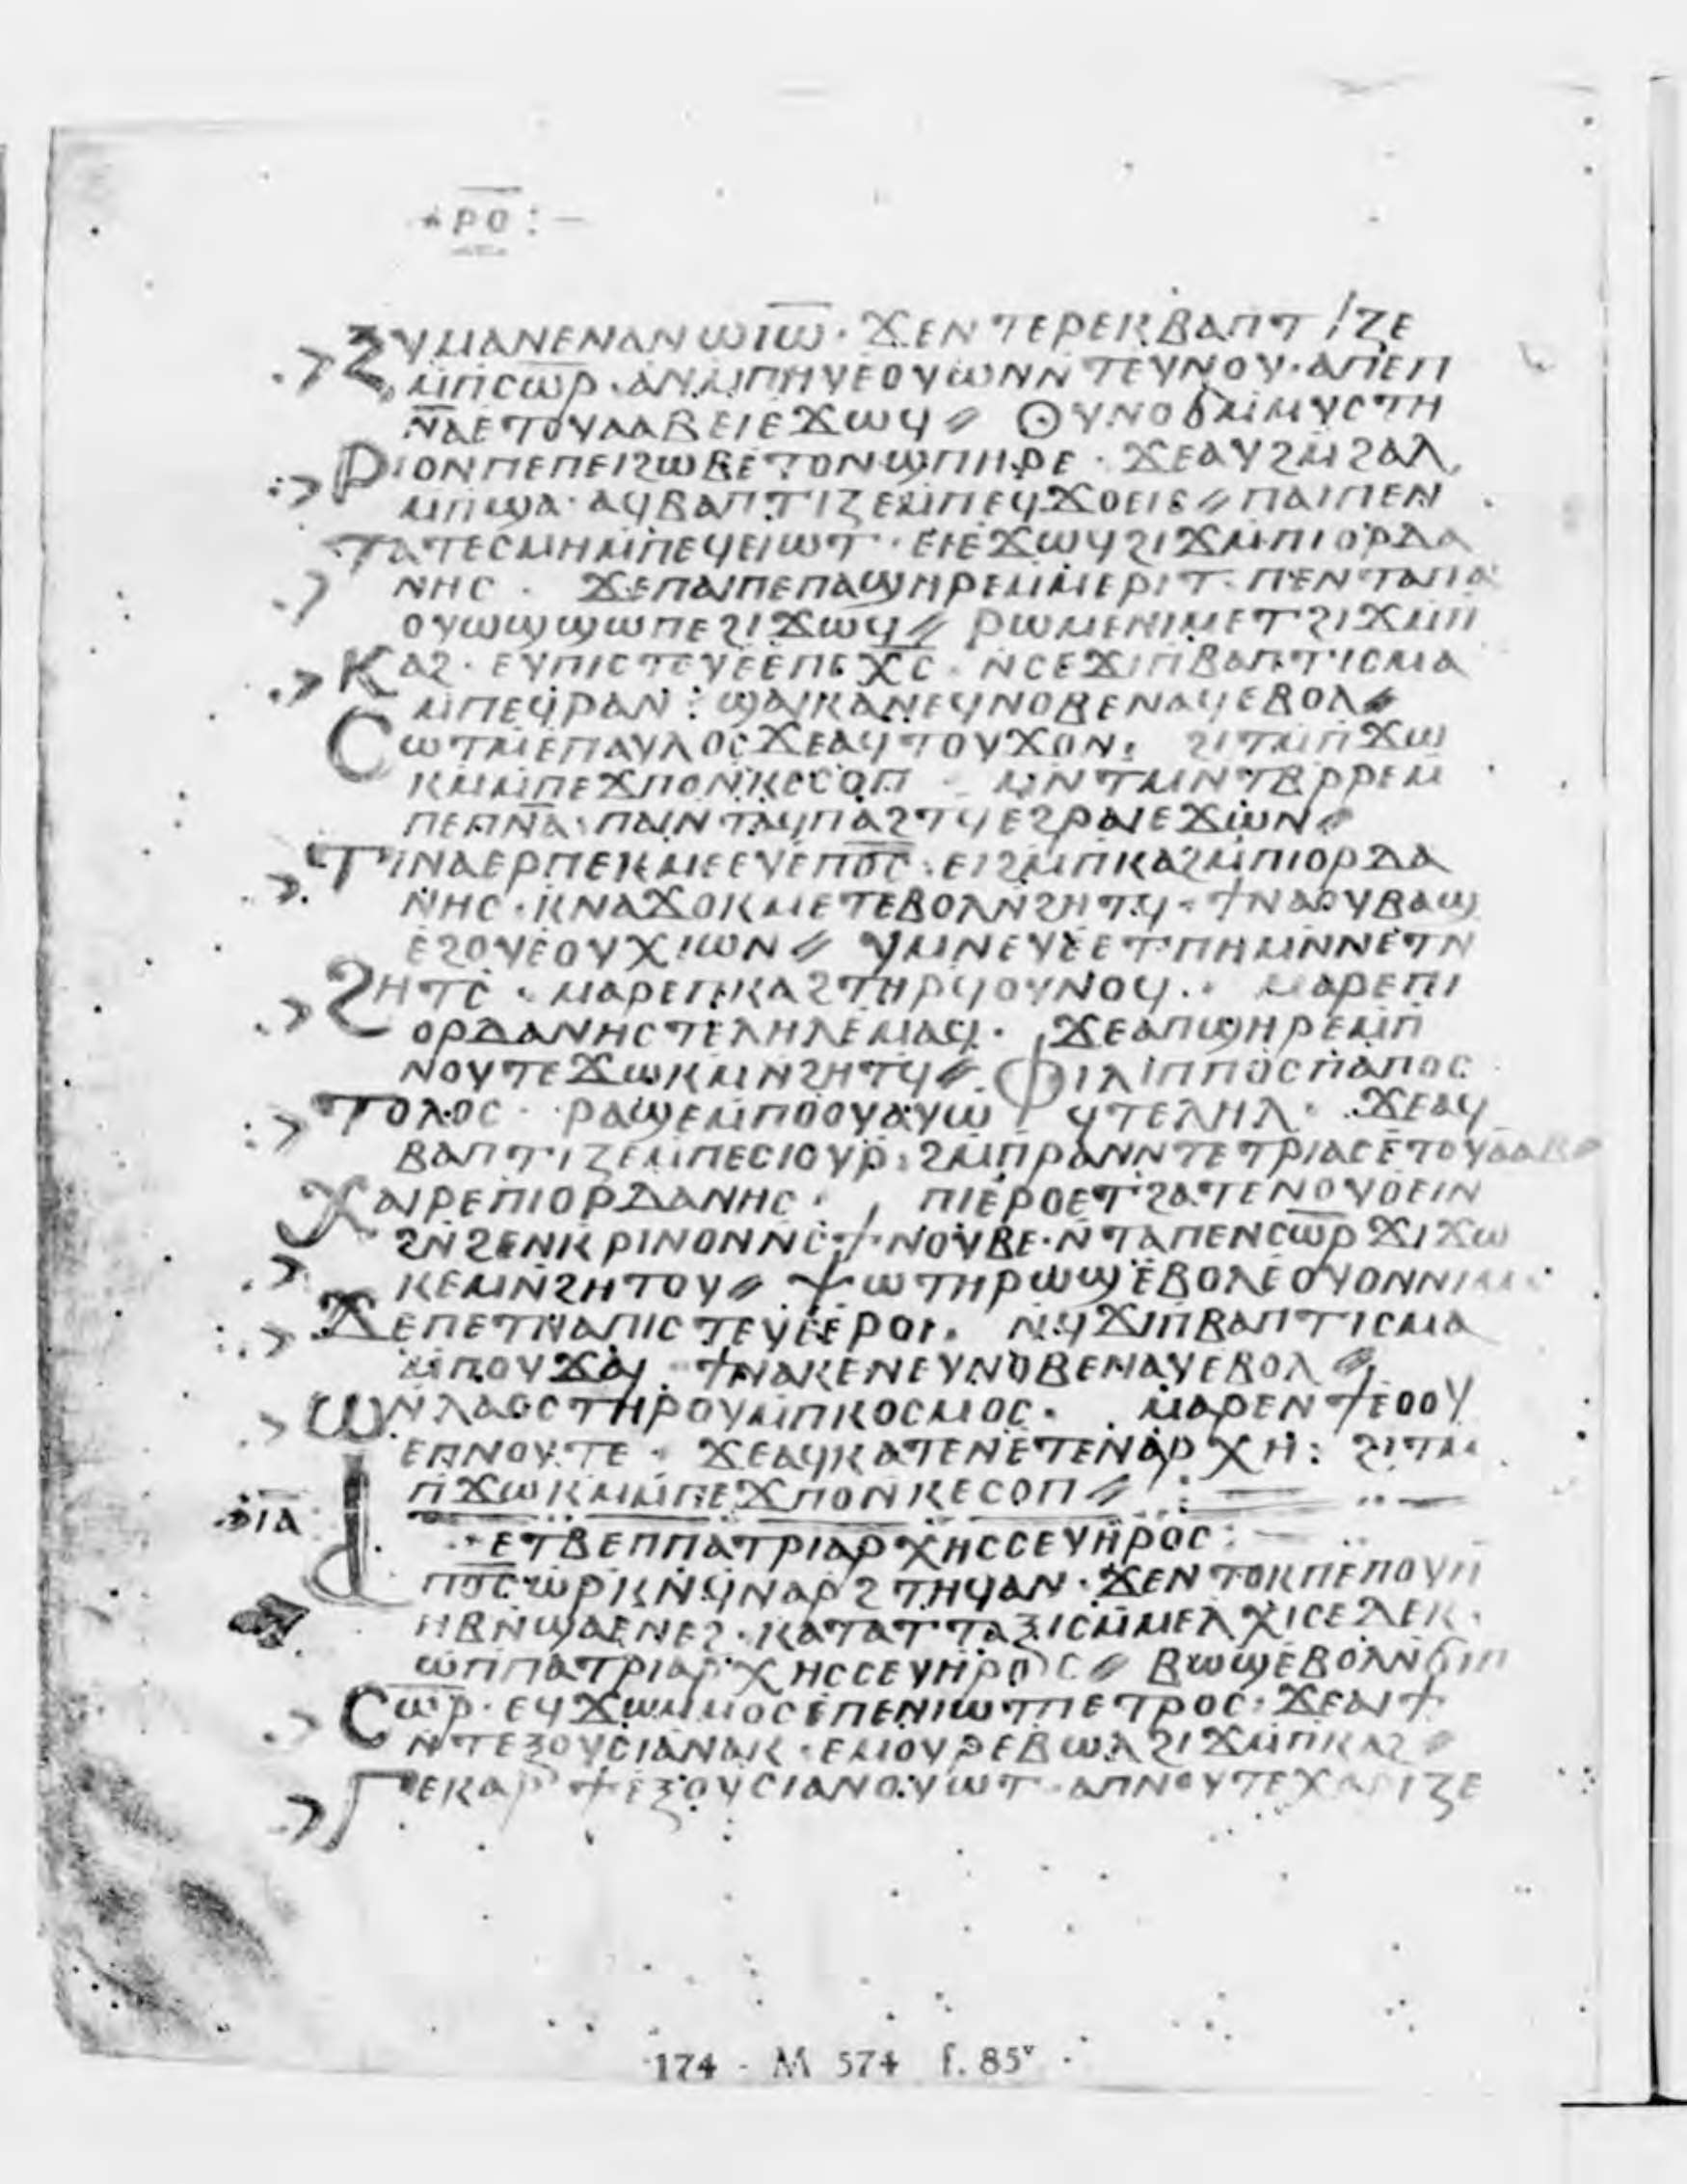 ⲣⲟ :—
ϩⲩⲙⲁⲛⲉ ⲛⲁⲛ ⲱ ⲓⲱ̅ · ϫⲉⲛⲧⲉⲣⲉⲕⲃⲁⲡⲧⲓⲍⲉ
ⲙ̅ⲡⲥⲱ̅ⲣ · ⲁⲛⲙ̅ⲡⲏⲩⲉ ⲟⲩⲱⲛ ⲛⲧⲉⲩⲛⲟⲩ · ⲁⲡⲉⲡ
ⲛ̅ⲁ ⲉⲧⲟⲩⲁⲁⲃ ⲉⲓ ⲉϫⲱϥ ⫽ Ⲑⲩⲛⲟϭ ⲙ̅ⲙⲩⲥⲧⲏ
Ⲣⲓⲟⲛ ⲡⲉ ⲡⲉⲓϩⲱⲃ ⲉⲧⲟⲛϣⲡⲏⲣⲉ · ϫⲉⲁⲩϩⲙ̅ϩⲁⲗ
ⲙ̅ⲡϣⲁ · ⲁϥⲃⲁⲡⲧⲓⲍⲉ ⲙ̅ⲡⲉϥϫⲟⲉⲓⲥ ⫽ ⲡⲁⲓ ⲡⲉⲛ
Ⲧⲁⲧⲉⲥⲙⲏ ⲙ̅ⲡⲉϥⲉⲓⲱⲧ · ⲉⲓ ⲉϫⲱϥ ϩⲓϫⲙ̅ⲡⲓⲟⲣⲇⲁ
ⲛⲏⲥ · ϫⲉⲡⲁⲓ ⲡⲉ ⲡⲁϣⲏⲣⲉ ⲙ̅ⲙⲉⲣⲓⲧ · ⲡⲉⲛⲧⲁⲡⲁ
ⲟⲩⲱϣ ϣⲱⲡⲉ ϩⲓϫⲱϥ ⫽ Ⲣⲱⲙⲉ ⲛⲓⲙ ⲉⲧϩⲓϫⲙ̅ⲡ
Ⲕⲁϩ · ⲉⲩⲡⲓⲥⲧⲉⲩⲉ ⲉⲡⲉⲭ̅ⲥ̅ · ⲛⲥⲉϫⲓⲡⲃⲁⲡⲧⲓⲥⲙⲁ
ⲙ̅ⲡⲉϥⲣⲁⲛ : ϣⲁⲓⲕⲁⲛⲉϥⲛⲟⲃⲉ ⲛⲁϥ ⲉⲃⲟⲗ ⫽
Ⲥⲱⲧⲙ̅ ⲉⲡⲁⲩⲗⲟⲥ ϫⲉⲁϥⲧⲟⲩϫⲟⲛ : ϩⲓⲧⲙ̅ⲡϫⲱ
ⲕⲙ̅ ⲙ̅ⲡⲉϫⲡⲟⲛ ⲕⲉⲥⲟⲡ · ⲙⲛⲧⲙⲛⲧⲃⲣⲣⲉ ⲙ̅
ⲡⲉⲡⲛ̅ⲁ · ⲡⲁⲓ ⲛⲧⲁϥⲡⲁϩⲧϥ ⲉϩⲣⲁⲓ ⲉϫⲱⲛ ⫽
Ϯⲛⲁⲉⲣⲡⲉⲕⲙⲉⲉⲩⲉ ⲡⲟ̅ⲥ̅ · ⲉⲓϩⲙ̅ⲡⲕⲁϩ ⲙ̅ⲡⲓⲟⲣⲇⲁ
ⲛⲏⲥ · ⲕⲛⲁϫⲟⲕⲙⲉⲧ ⲉⲃⲟⲗ ⲛϩⲏⲧϥ · ϯⲛⲁⲟⲩⲃⲁϣ
ⲉϩⲟⲩⲉ ⲟⲩⲭⲓⲱⲛ ⫽ Ⲩⲙⲛⲉⲩⲉ ⲉⲧⲡⲏ ⲙⲛⲛⲉⲧⲛ
Ϩⲏⲧⲥ · ⲙⲁⲣⲉⲡⲕⲁϩ ⲧⲏⲣϥ ⲟⲩⲛⲟϥ · ⲙⲁⲣⲉⲡⲓ
ⲟⲣⲇⲁⲛⲏⲥ ⲧⲉⲗⲏⲗ ⲉⲙⲁϣ · ϫⲉⲁⲡϣⲏⲣⲉ ⲙ̅ⲡ
ⲛⲟⲩⲧⲉ ϫⲱⲕⲙ̅ ⲛϩⲏⲧϥ ⫽ Ⲫⲓⲗⲓⲡⲡⲟⲥ ⲡⲁⲡⲟⲥ
Ⲧⲟⲗⲟⲥ · ⲣⲁϣⲉ ⲙ̅ⲡⲟⲟⲩ ⲁⲩⲱ ϥⲧⲉⲗⲏⲗ · ϫⲉⲁϥ
ⲃⲁⲡⲧⲓⲍⲉ ⲙ̅ⲡⲉⲥⲓⲟⲩⲣ · ϩⲙ̅ⲡⲣⲁⲛ ⲛⲧⲉⲧⲣⲓⲁⲥ ⲉⲧⲟⲩⲁⲁⲃ
Ⲭⲁⲓⲣⲉ ⲡⲓⲟⲣⲇⲁⲛⲏⲥ · ⲡⲓⲉⲣⲟ ⲉⲧϩⲁⲧⲉ ⲛⲟⲩⲟⲉⲓⲛ
ϩⲛ ϩⲉⲛⲕⲣⲓⲛⲟⲛ ⲛⲥϯⲛⲟⲩⲃⲉ · ⲛⲧⲁⲡⲉⲛⲥⲱ̅ⲣ ϫⲓϫⲱ
ⲕⲉⲙ ⲛϩⲏⲧⲟⲩ ⫽ Ⲯⲱⲧⲏⲣ ⲱϣ ⲉⲃⲟⲗ ⲉⲟⲩⲟⲛ ⲛⲓⲙ
Ϫⲉⲡⲉⲧⲛⲁⲡⲓⲥⲧⲉⲩⲉ ⲉⲣⲟⲓ · ⲛϥϫⲓⲡⲃⲁⲡⲧⲓⲥⲙⲁ
ⲙ̅ⲡⲟⲩϫⲁⲓ · ϯⲛⲁⲕⲉⲛⲉⲩⲛⲟⲃⲉ ⲛⲁⲩ ⲉⲃⲟⲗ ⫽
Ⲱ ⲛⲗⲁⲟⲥ ⲧⲏⲣⲟⲩ ⲙ̅ⲡⲕⲟⲥⲙⲟⲥ · ⲙⲁⲣⲉⲛϯⲉⲟⲟⲩ
ⲉⲡⲛⲟⲩⲧⲉ · ϫⲉⲁϥⲕⲁⲧⲉⲛ ⲉⲧⲉⲛⲁⲣⲭⲏ : ϩⲓⲧⲙ̅
ⲡϫⲱⲕⲙ̅ ⲙ̅ⲡⲉϫⲡⲟⲛ ⲕⲉⲥⲟⲡ ⫽ :
ⲓⲁ ⲉⲧⲃⲉ ⲡⲡⲁⲧⲣⲓⲁⲣⲭⲏⲥ ⲥⲉⲩⲏⲣⲟⲥ :
Ⲁ ⲡⲟ̅ⲥ̅ ⲱⲣⲕ ⲛϥⲛⲁⲣϩⲧⲏϥ ⲁⲛ · ϫⲉⲛⲧⲟⲕ ⲡⲉ ⲡⲟⲩⲏ
ⲏⲃ ⲛϣⲁⲉⲛⲉϩ · ⲕⲁⲧⲁⲧⲧⲁⲝⲓⲥ ⲙ̅ⲙⲉⲗⲭⲓⲥⲉⲇⲉⲕ ·
ⲱ ⲡⲡⲁⲧⲣⲓⲁⲣⲭⲏⲥ ⲥⲉⲩⲏⲣⲟⲥ ⫽ Ⲃⲱϣ ⲉⲃⲟⲗ ⲛϭⲓⲡ
Ⲥⲱ̅ⲣ · ⲉϥϫⲱ ⲙ̅ⲙⲟⲥ ⲉⲡⲉⲛⲓⲱⲧ ⲡⲉⲧⲣⲟⲥ · ϫⲉⲁⲓϯ
ⲛⲧⲉⲝⲟⲩⲥⲓⲁ ⲛⲁⲕ · ⲉⲙⲟⲩⲣ ⲉⲃⲱⲗ ϩⲓϫⲙ̅ⲡⲕⲁϩ ⫽
Ⲅⲉⲕⲁⲣ ϯⲉⲝⲟⲩⲥⲓⲁ ⲛⲟⲩⲱⲧ · ⲁⲡⲛⲟⲩⲧⲉ ⲭⲁⲣⲓⲍⲉ
174 - M 574 f. 85ᵛ